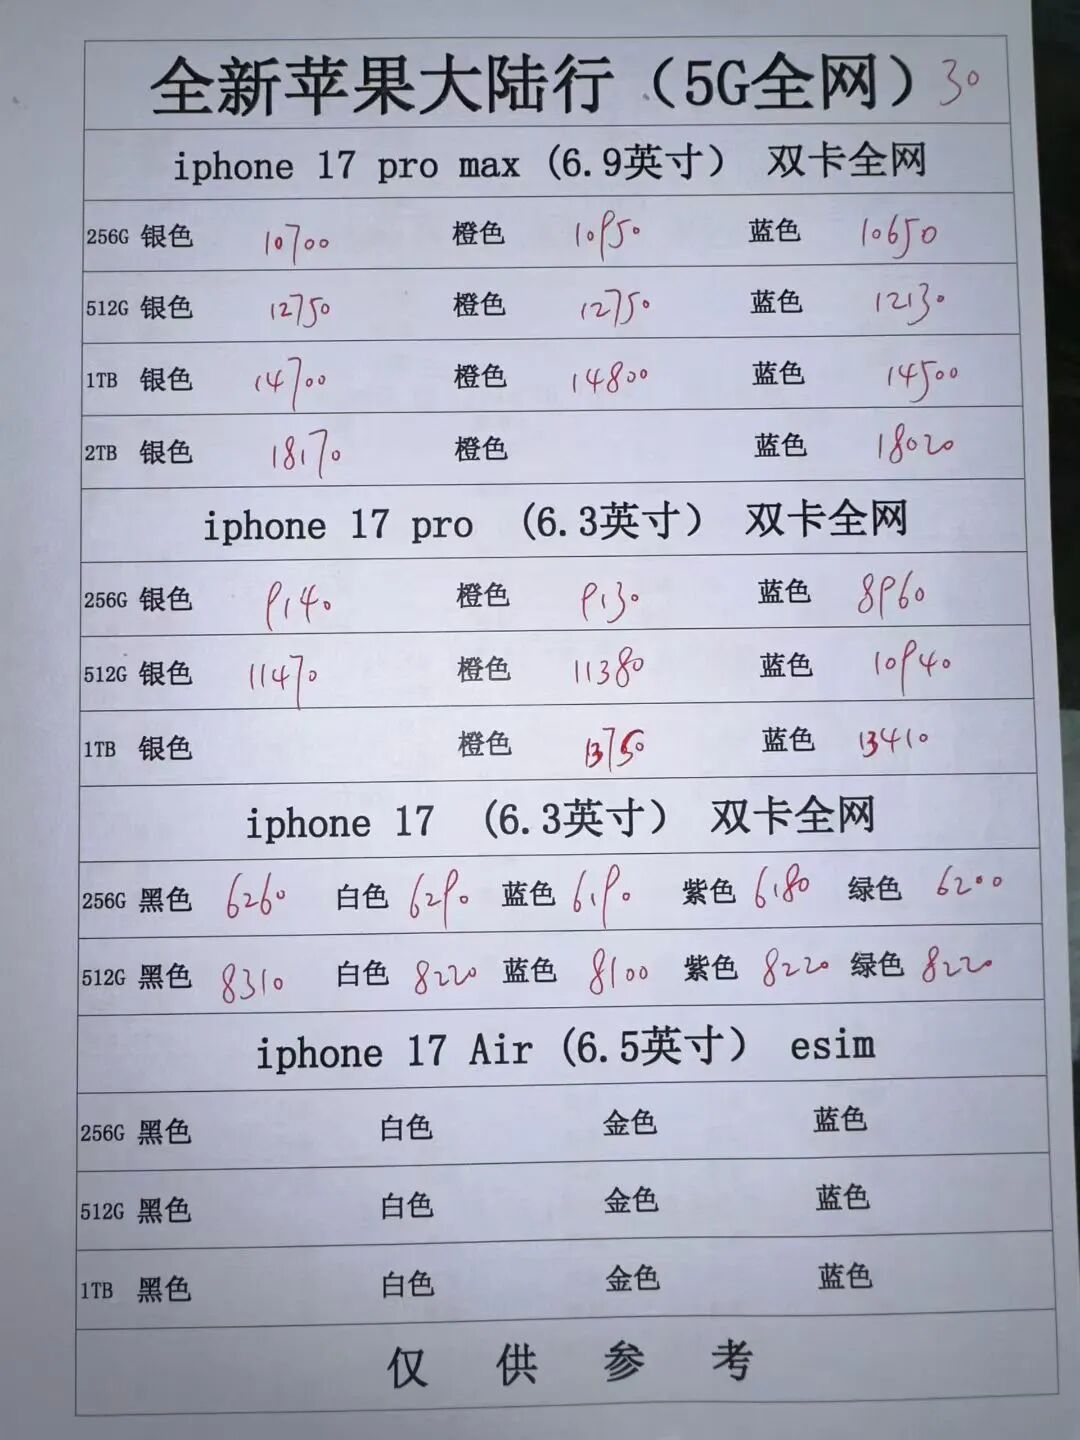 全新苹果大陆行（5G全网）30
iphone 17 pro max（6.9英寸） 双卡全网
256G 银色 10700 橙色 10950 蓝色 10650
512G 银色 12750 橙色 12750 蓝色 12130
1TB 银色 14700 橙色 14800 蓝色 14500
2TB 银色 18170 橙色 蓝色 18020
iphone 17 pro （6.3英寸） 双卡全网
256G 银色 9140 橙色 9130 蓝色 8960
512G 银色 11470 橙色 11380 蓝色 10940
1TB 银色 橙色 13750 蓝色 13410
iphone 17 （6.3英寸） 双卡全网
256G 黑色 6260 白色 6290 蓝色 6190 紫色 6180 绿色 6200
512G 黑色 8310 白色 8220 蓝色 8100 紫色 8220 绿色 8220
iphone 17 Air（6.5英寸） esim
256G 黑色 白色 金色 蓝色
512G 黑色 白色 金色 蓝色
1TB 黑色 白色 金色 蓝色
仅供参考